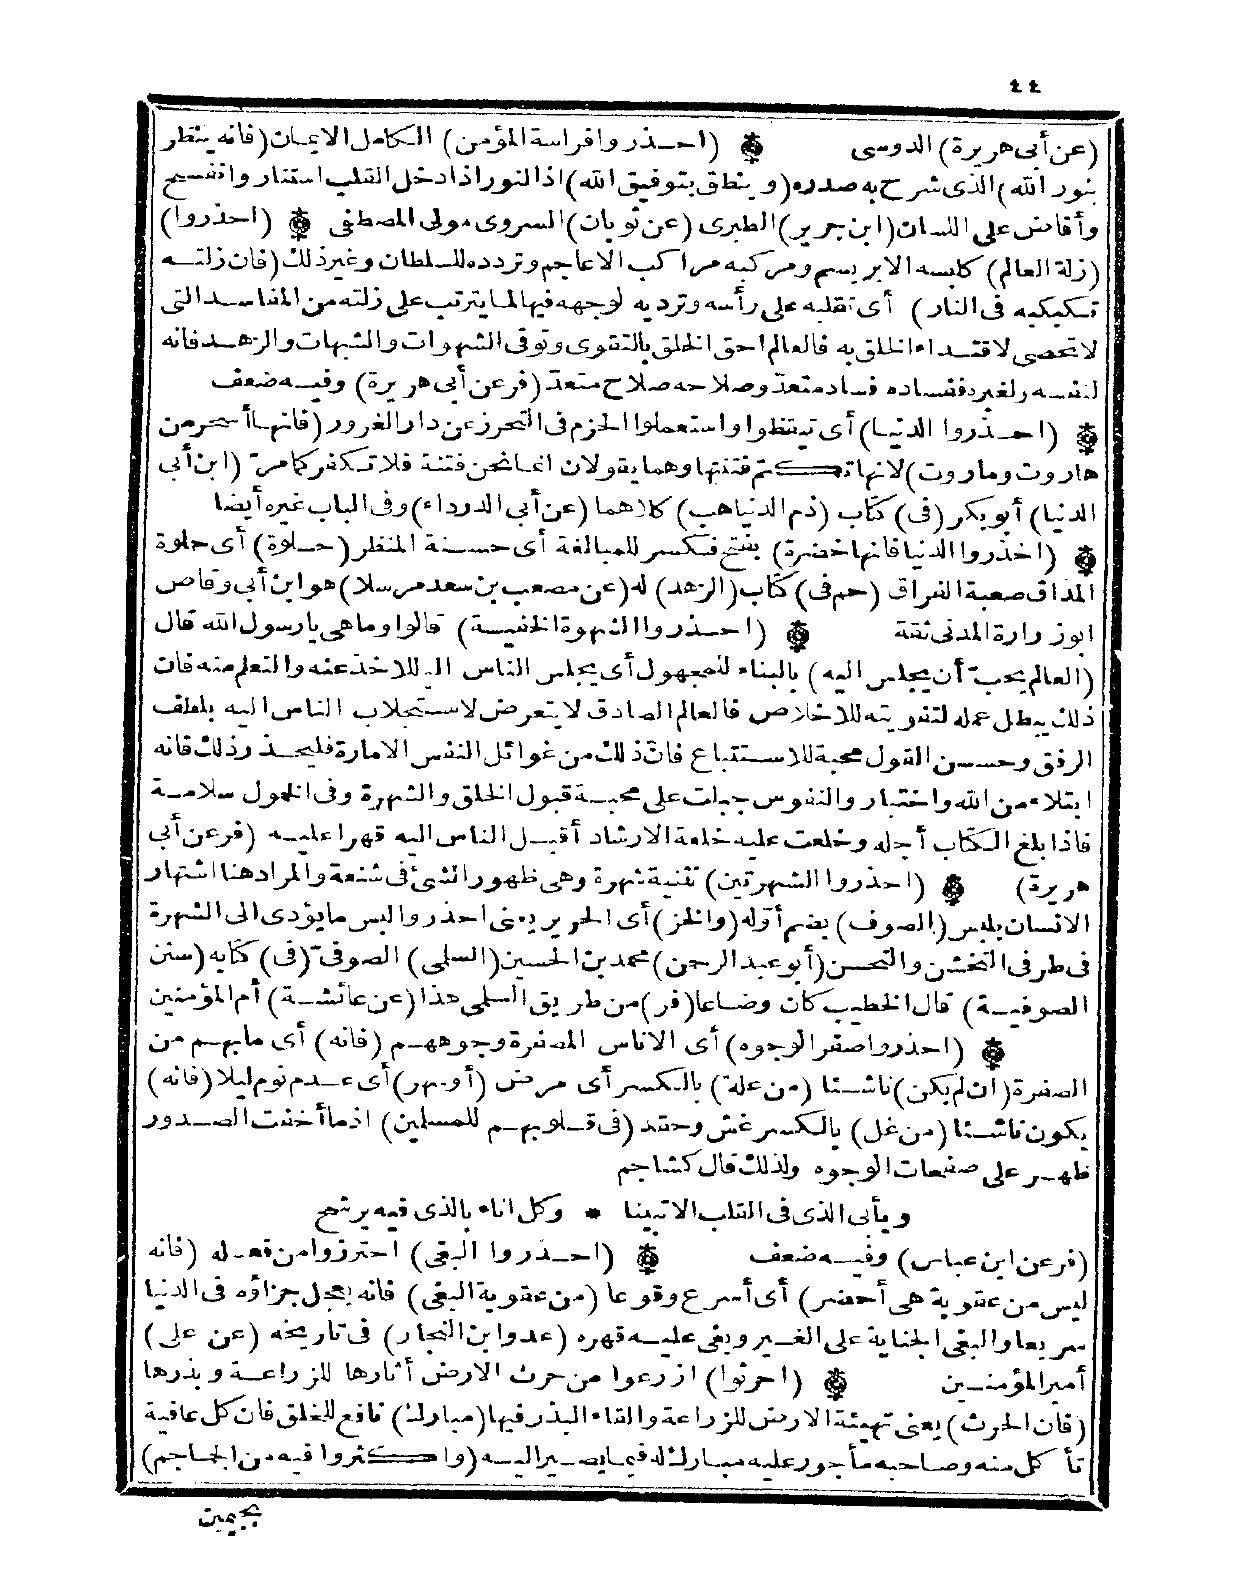 ٤٤
(عن أبى هريرة) الدوسى ۞ (احـذروا فراسة المؤمن) الكامل الايمان (فانه ينظر
بنور الله) الذى شرح به صدره (و ينطق بتوفيق الله) اذ النور اذا دخل القلب استنار وانفسح
وأفاض على اللسان (ابن جرير) الطبرى (عن ثوبان) السروى مولى المصطفى ۞ (احذروا)
(زلة العالم) كلبسه الابريسم ومركبه مراكب الاعاجم وتردده للسلطان وغيرذلك (فان زلتـه
تكبكبه فى النار) أى تقلبه على رأسه وترديه لوجهه فيها لما يترتب على زلته من المفاسـد التى
لا تحصى لاقتـداء الخلق به فالعالم احق الخلق بالتقوى وتوقى الشهوات والشبهات والزهـد فانه
لنفسـه ولغيره ففساده فسادمتعدّ وصلاحه صلاح متعدّ (فر عن أبى هريرة) وفيـه ضعف
۞ (احـذروا الدنيـا) أى تيقظوا واستعملوا الحزم فى التحرز عن دار الغرور (فانهـا أسحر من
هاروت وماروت) لانها تكتم فتنتها وهما يقولان انما نحن فتنة فلا تـكفر كامرّ (ابن أبى
الدنيا) أبو بكر (فى) كتاب (ذم الدنيا هب) كلاهما (عن أبى الدرداء) وفى الباب غيره أيضا
۞ (احذروا الدنيا فانها خضرة) بفتح فـكسر للمبالغة أى حسـنة المنظر (حـلوة) أى حلوة
المذاق صعبة الفراق (حم فى) كتاب (الزهد) له (عن مصعب بن سعد مرسلا) هو ابن أبى وقاص
ابوزرارة المدنى ثقة ۞ (احـذروا الشهوة الخفيـة) قالوا وما هى يارسول الله قال
(العالم يحبّ أن يجلس اليه) بالبناء للمجهول أى يجلس الناس اليه للاخذعنه والتعلم منه فان
ذلك يبطل عمله لتفويته للاخلاص فالعالم الصادق لا يتعرض لاستجلاب الناس اليه بلطف
الرفق وحسـن القول محبة للاسـتتباع فانّ ذلك من غوائل النفس الامارة فليحـذر ذلك فانه
ابتلاء من الله واختبار والنفوس جبلت على محبـة قبول الخلق والشهرة وفى الخمول سلامـة
فاذا بلغ الـكتاب أجله وخلعت عليه خلعة الارشاد أقبـل الناس اليه قهرا عليـه (فر عن أبى
هريرة) ۞ (احذروا الشهرتين) تثنية شهرة وهى ظهور الشئ فى شنعة والمراد هنا اشتهار
الانسان بلبس (الصوف) بضم أوّله (والخز) أى الحرير يعنى احذروا لبس مايؤدى الى الشهرة
فى طرفى التخشن والتحسن (أبو عبد الرحمن) محمد بن الحسين (السلمى) الصوفىّ (فى) كتابه (سنن
الصوفيـة) قال الخطيب كان وضاعا (فر) من طريق السلمى هذا (عن عائشـة) أم المؤمنين
۞ (احذروا صفر الوجوه) أى الاناس المصفرة وجوههـم (فانه) أى مابهـم من
الصفرة (ان لم يكن) ناشـئا (من علة) بالكسر أى مرض (أوسهر) أى عـدم نوم ليلا (فانه)
يكون ناشـئا (من غل) بالكسر غش وحقد (فى قـلوبهـم للمسلمين) اذ ما أخفت الصـدور
ظهـر على صفحات الوجوه ولذلك قال كشاجم
ويأبى الذى فى القلب الا تبينا * وكل اناء بالذى فيه يرشح
(فر عن ابن عباس) وفيـه ضعف ۞ (احـذروا البغى) احترزوا من فعـله (فانه
ليس من عقوبة هى أحضر) أى أسرع وقوعا (من عقوبة البغى) فانه يعجل جزاؤه فى الدنيا
سريعا والبغى الجناية على الغـير وبغى عليـه قهره (عد وابن النجار) فى تاريخه (عن على)
أميرالمؤمنـين ۞ (احرثوا) ازرعوا من حرث الارض أثارها للزراعـة وبذرها
(فان الحرث) يعنى تهيئة الارض للزراعة والقاء البذر فيها (مبارك) نافع للخلق فان كل عافية
تأكل منه وصاحبه مأجور عليه مبارك له فيما يصـيراليـه (واكثروا فيه من الجماجم)